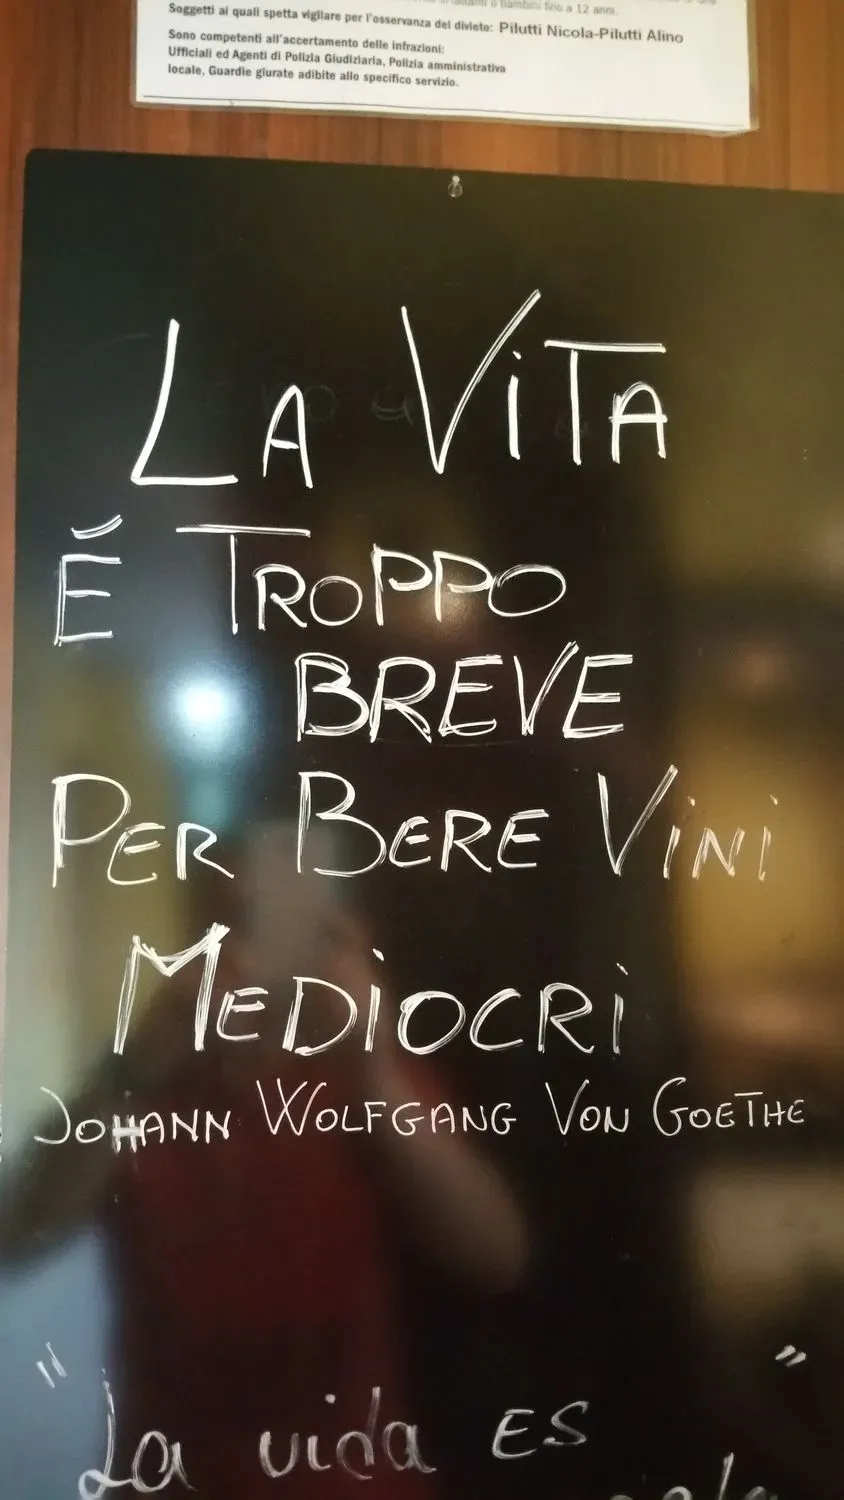 o bambini fino a 12 anni.
Soggetti ai quali spetta vigilare per l'osservanza del divieto: Pilutti Nicola-Pilutti Alino
Sono competenti all'accertamento delle infrazioni:
Ufficiali ed Agenti di Polizia Giudiziaria, Polizia amministrativa
locale, Guardie giurate adibite allo specifico servizio.
LA ViTA
É TROPPO
BREVE
PER BERE ViNi
MEDiOCRi
JOHANN WOLFGANG VON GOETHE
"La vida ES "